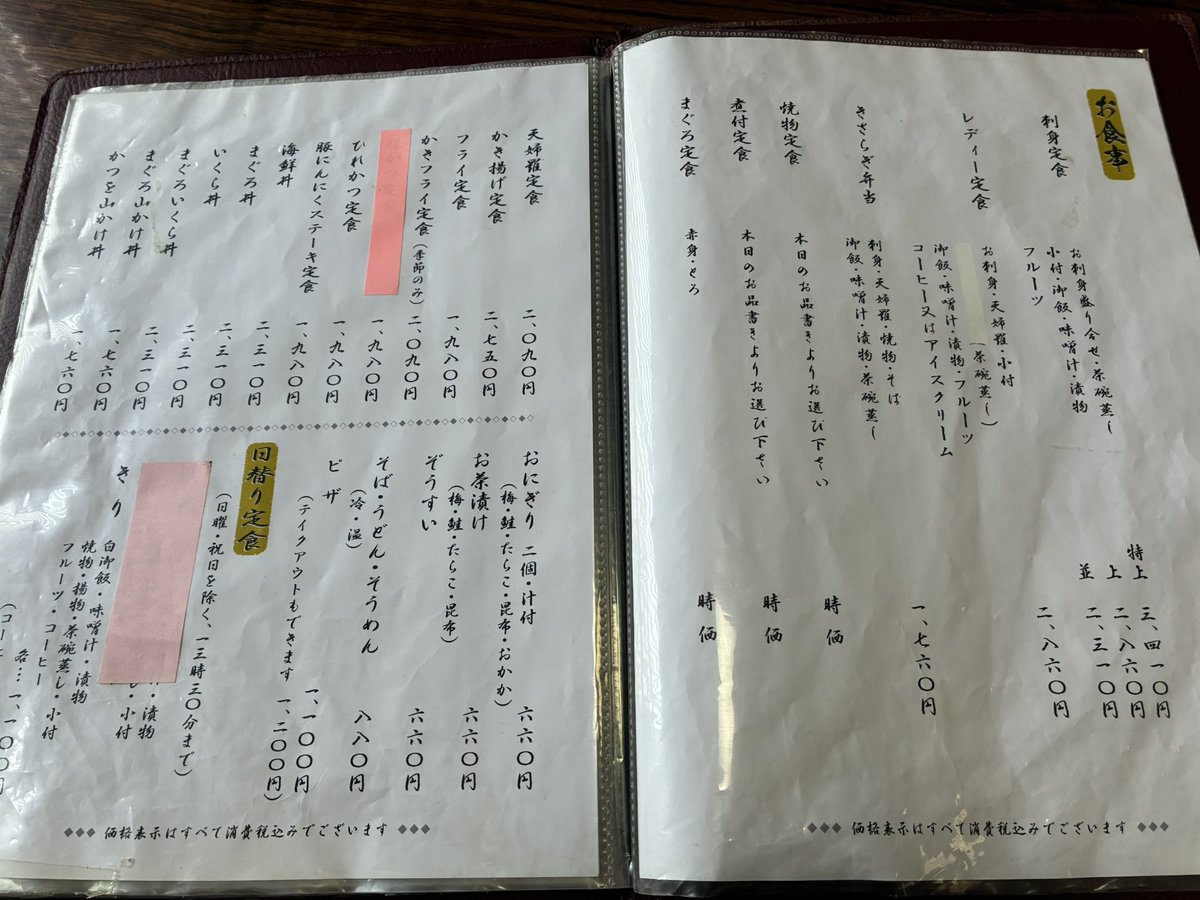 お食事
刺身定食
お刺身盛り合せ・茶碗蒸し
小付御飯・味噌汁・漬物
フルーツ
特上 三、四一〇円
上 二、八六〇円
並 二、三一〇円
レディー定食
お刺身・天婦羅・小付
(茶碗蒸し)
御飯・味噌汁・漬物・フルーツ
コーヒー又はアイスクリーム
二、八六〇円
きさらぎ弁当
刺身・天婦羅・焼物・そば
御飯・味噌汁・漬物・茶碗蒸し
一、七六〇円
焼物定食 本日のお品書きよりお選び下さい 時価
煮付定食 本日のお品書きよりお選び下さい 時価
まぐろ定食 赤身・とろ 時価
価格表示はすべて消費税込みでございます
天婦羅定食 二、〇九〇円
かき揚げ定食 二、七五〇円
フライ定食 一、九八〇円
かきフライ定食(季節のみ) 二、〇九〇円
一、九八〇円
ひれかつ定食 一、九八〇円
豚にんにくステーキ定食 一、九八〇円
海鮮丼 二、三一〇円
まぐろ丼 二、三一〇円
いくら丼 二、三一〇円
まぐろいくら丼 二、三一〇円
まぐろ山かけ丼 一、七六〇円
かつを山かけ丼 一、七六〇円
おにぎり 二個・汁付 六六〇円
(梅・鮭・たらこ・昆布・おかか)
お茶漬け 六六〇円
(梅・鮭・たらこ・昆布)
ぞうすい 六六〇円
そば・うどん・そうめん 八八〇円
(冷・温)
ピザ 一、一〇〇円
(テイクアウトもできます 一、二〇〇円)
日替り定食
(日曜・祝日を除く、一三時三〇分まで)
・漬物
し・小付
きり
白御飯・味噌汁・漬物
焼物・揚物・茶碗蒸し・小付
フルーツ・コーヒー
各…一、一〇〇円
価格表示はすべて消費税込みでございます